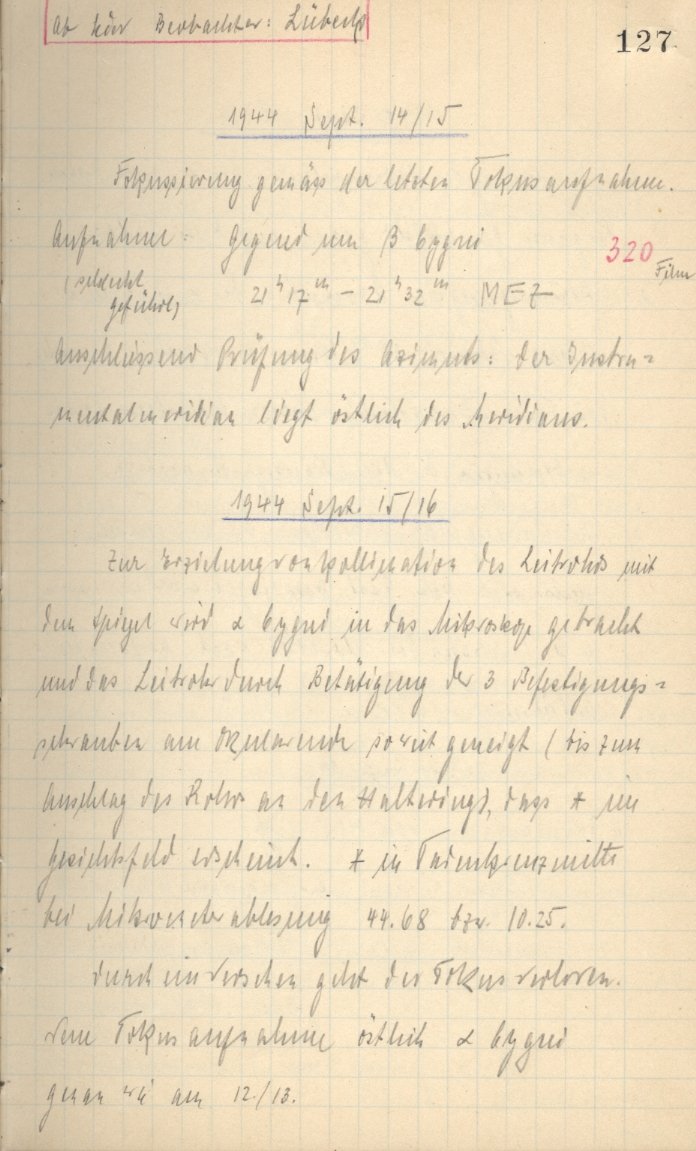 ab hier Beobachter: Lübeck
127
1944 Sept. 14/15
Fokussierung gemäss der letzten Fokusaufnahme.
Aufnahme: Gegend um β Cygni 320 Film
(schlecht geführt) 21ʰ17ᵐ – 21ʰ32ᵐ MEZ
Anschliessend Prüfung des Azimuts: Der Instru=
mentalmeridian liegt östlich des Meridians.
1944 Sept. 15/16
Zur Erzielung von Kollimation des Leitrohrs mit
dem Spiegel wird α Cygni in das Mikroskop gebracht
und das Leitrohr durch Betätigung der 3 Befestigungs=
schrauben am Okularende soweit geneigt (bis zum
Anschlag des Rohrs an den Haltering), dass * im
Gesichtsfeld erscheint. * in Fadenkreuzmitte
bei Mikrometerablesung 44.68 bzw. 10.25.
Durch ein Versehen geht der Fokus verloren.
Neue Fokusaufnahme östlich α Cygni
genau wie am 12./13.